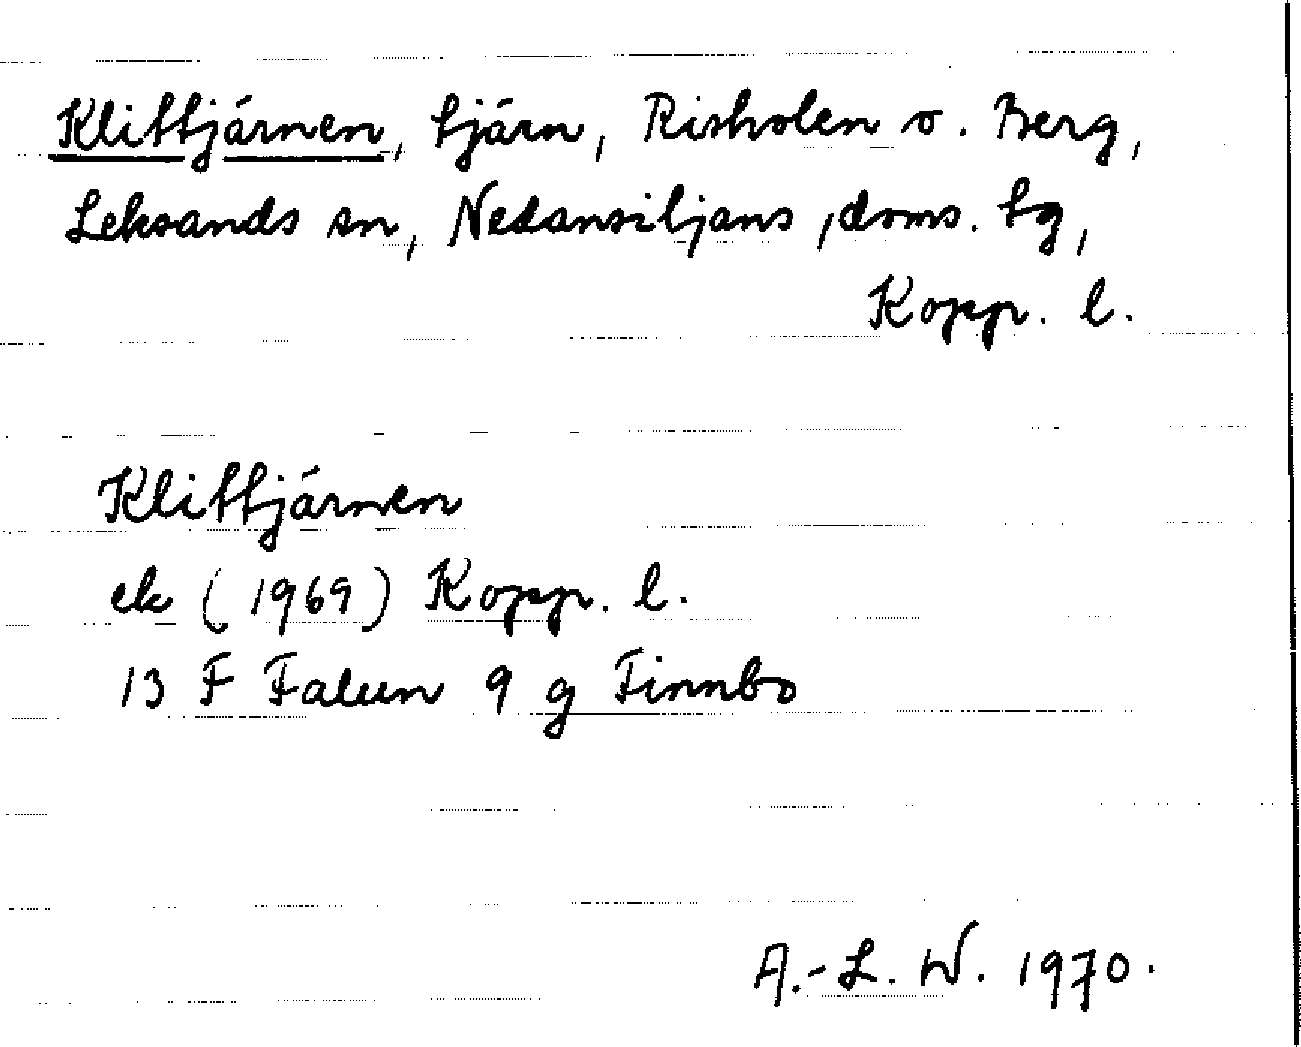 Klittjärnen, tjärn, Risholen o. Berg,
Leksands sn, Nedansiljans doms. lg,
Kopp. l.
Klittjärnen
ek (1969) Kopp. l.
13 F Falun 9 g Finnbo
A.-L. W. 1970.